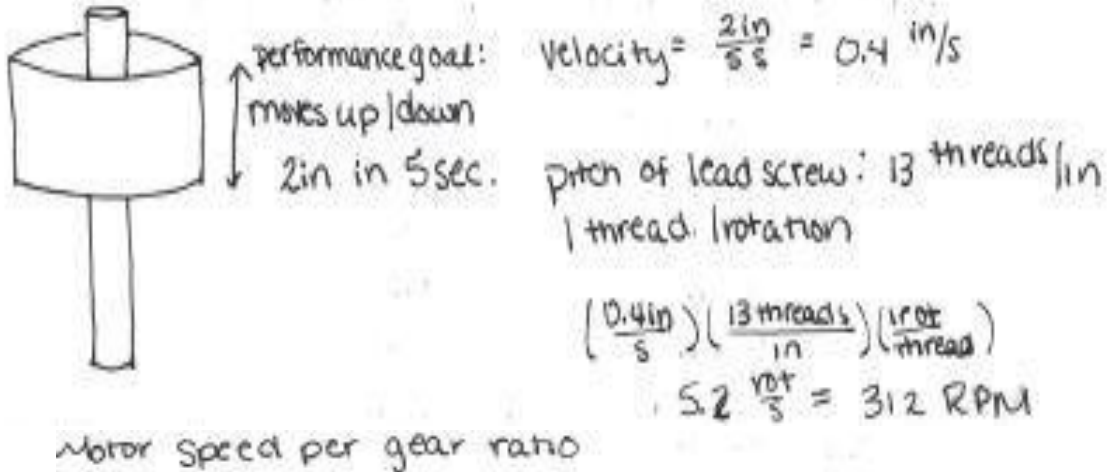 performance goal:
moves up/down
2in in 5sec.
Velocity = 2in/5s = 0.4 in/s
pitch of lead screw: 13 threads/in
1 thread/rotation
(0.4in/s)(13 threads/in)(1rot/thread)
5.2 rot/s = 312 RPM
Motor speed per gear ratio